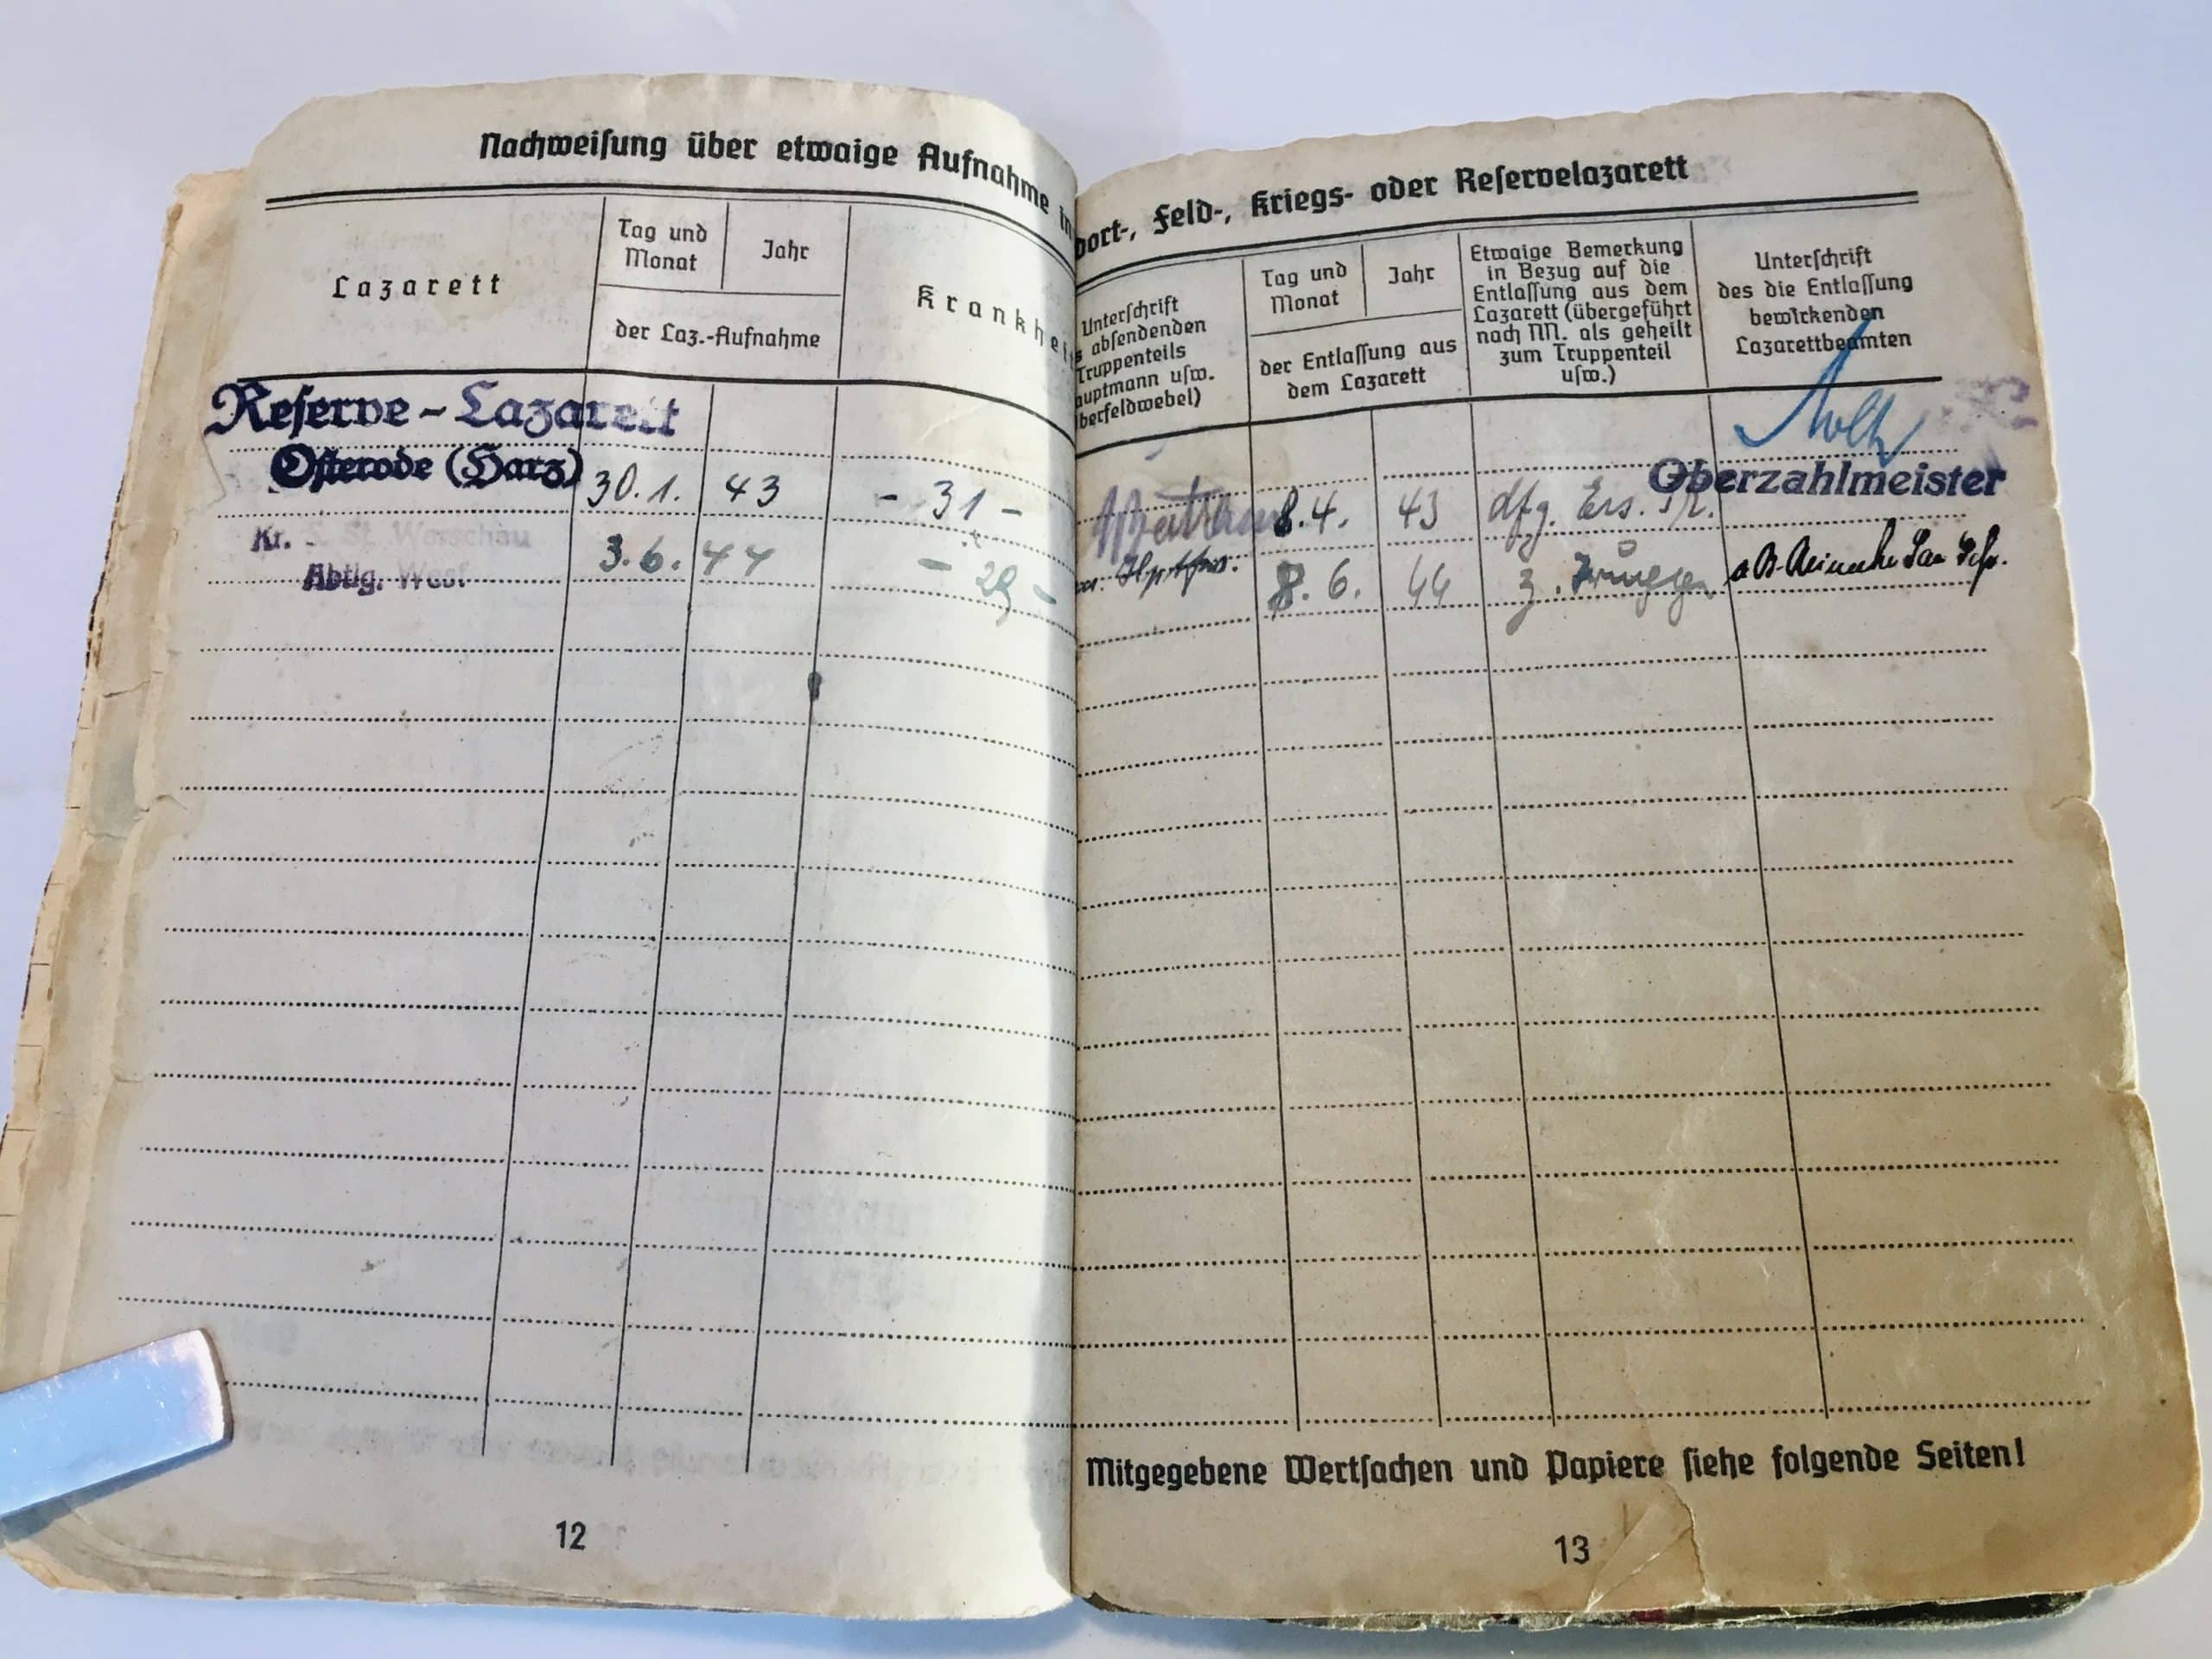 Nachweisung über etwaige Aufnahme in
Lazarett
Tag und
Monat
Jahr
der Laz.-Aufnahme
Krankhei
Reserve-Lazarett
Osterode (Harz)
30.1.
43
- 31 -
Kr. St. Warschau
Abtlg. West
3.6.
44
- 29 -
12
dort-, Feld-, Kriegs- oder Reservelazarett
Unterschrift
s absendenden
Truppenteils
auptmann usw.
berfeldwebel)
Tag und
Monat
Jahr
der Entlassung aus
dem Lazarett
Etwaige Bemerkung
in Bezug auf die
Entlassung aus dem
Lazarett (übergeführt
nach NN. als geheilt
zum Truppenteil
usw.)
Unterschrift
des die Entlassung
bewirkenden
Lazarettbeamten
Oberzahlmeister
8.4.
43
dfg. Ers. Tr.
8.6.
44
z.
Mitgegebene Wertsachen und Papiere siehe folgende Seiten!
13